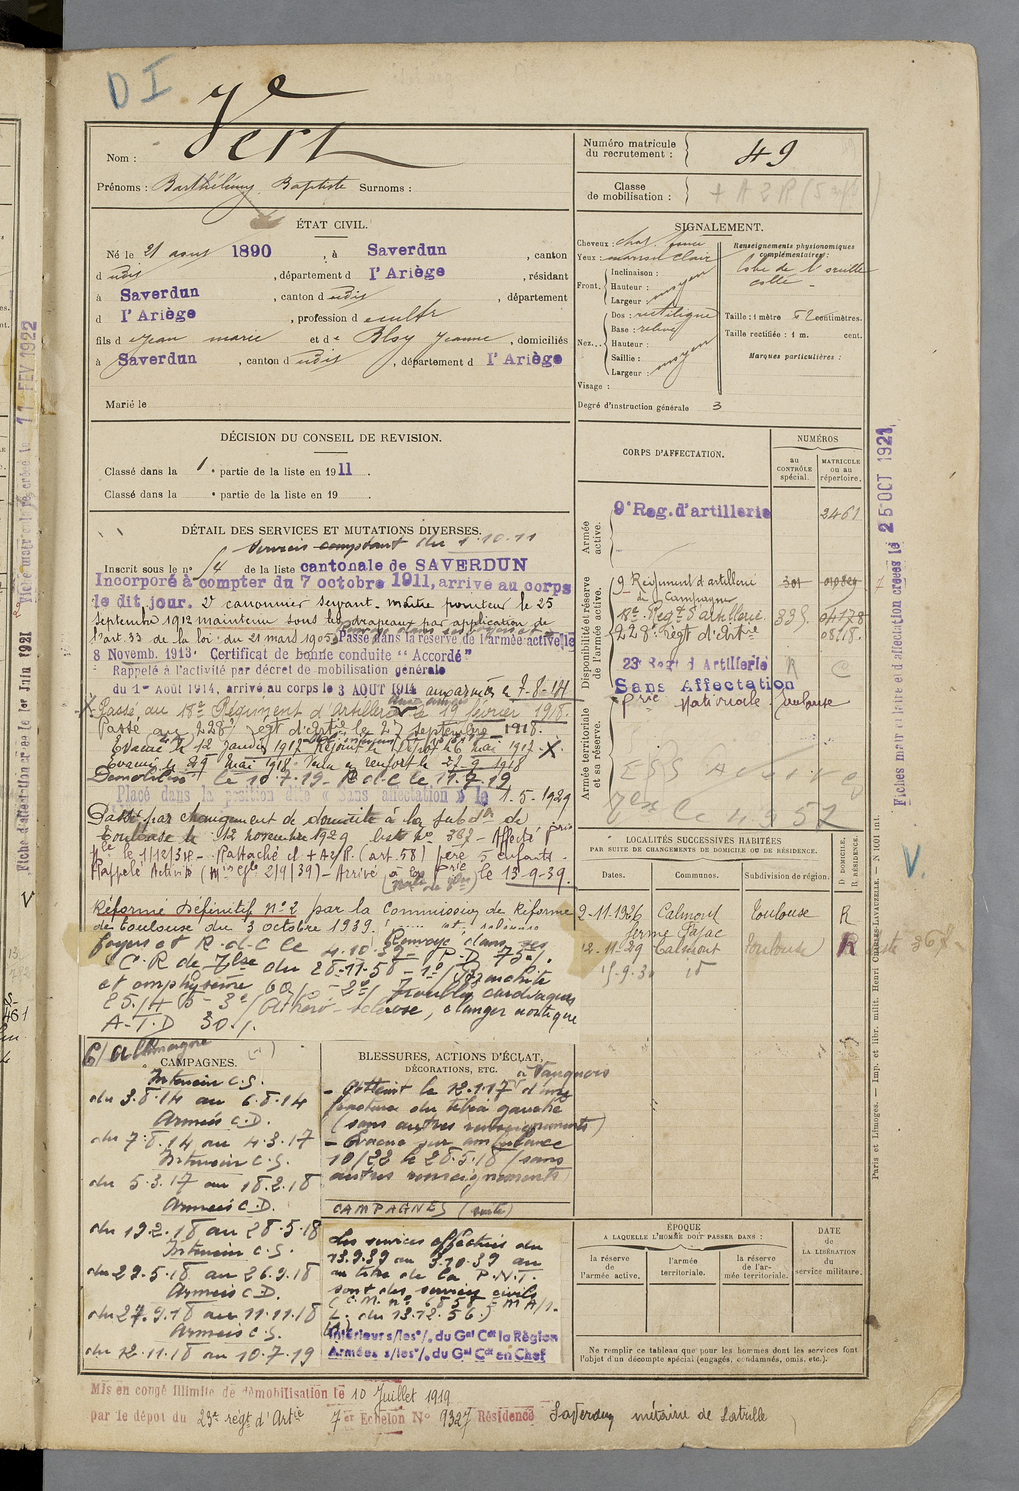 D I
Vert
Nom :
Prénoms : Barthélémy Baptiste Surnoms :
Numéro matricule du recrutement : 49
Classe de mobilisation : + A 2 R (5 enfts)
ÉTAT CIVIL.
Né le 21 aout 1890, à Saverdun, canton
d udit, département d l'Ariège, résidant
à Saverdun, canton d udit, département
d l'Ariège, profession d cultr
fils d Jean marie et de Blsy Jeanne, domiciliés
à Saverdun, canton d udit, département d l'Ariège
Marié le
SIGNALEMENT.
Cheveux : chat. foncé
Yeux : marron clair
Front. Inclinaison :
Hauteur : moyen
Largeur :
Nez... Dos : rectiligne
Base : relevé
Hauteur :
Saillie : moyen
Largeur :
Visage :
Degré d'instruction générale 3
Renseignements physionomiques complémentaires :
lobe de l'oreille
collé
Taille : 1 mètre centimètres.
Taille rectifiée : 1 m. cent.
Marques particulières :
DÉCISION DU CONSEIL DE REVISION.
Classé dans la 1e partie de la liste en 1911.
Classé dans la e partie de la liste en 19 .
DÉTAIL DES SERVICES ET MUTATIONS DIVERSES.
Services comptant du 1.10.11
Inscrit sous le no 14 de la liste cantonale de SAVERDUN
Incorporé à compter du 7 octobre 1911, arrive au corps
le dit jour. 2e canonnier servant. Maître pointeur le 25
Septembre 1912 maintenu sous les drapeaux par application de
l'art. 33 de la loi du 21 mars 1905. Passé dans la réserve de l'armée active le
8 Novemb. 1913. Certificat de bonne conduite "Accordé"
Rappelé à l'activité par décret de mobilisation générale
du 1er Août 1914, arrivé au corps le 3 AOUT 1914 aux armées le 7-8-14
Passé au 18e Régiment d'Artillerie le 19 février 1918.
Passé au 228e Régt d'Artie le 27 Septembre 1918.
Evacué le 12 Janvier 1917 - Rejoint le Dépôt 26 mai 1917 X
Evacué le 29 mai 1918. Parti en renfort le 27-9 1918
Démobilisé le 10-7-19 - R d C le 17.7.19
Placé dans la position dite « Sans affectation » le 1-5-1929
Passé par changement de domicile à la subdon de
Toulouse le 12 novembre 1929 liste no 367 - Affecté pris
le 1/12/38 - Rattaché cl + A2R. (art. 58) père 5 enfants -
Rappelé Activité (Min Gle 2/9/39) - Arrivé le 13-9-39.
Réformé Définitif no 2 par la Commission de Réforme
de Toulouse du 3 octobre 1939. Renvoyé dans ses
foyers et R-d-C le 4-10-39 - P.D. 75%.
C.R de Tlse du 28-11-58 - 1o/ Bronchite
et emphysème 60% - 2o/ Troubles cardiaques
25% + 5 - 3o/ Athéro-sclérose, élongation aortique
A-T-D 30%.
CORPS D'AFFECTATION.
NUMÉROS
au CONTRÔLE spécial.
MATRICULE ou au répertoire.
Armée active.
9e Reg. d'artillerie 2461
Disponibilité et réserve de l'armée active.
9e Régiment d'artillerie
de Campagne
18e Régt d'artillerie 335 04778
228e Régt d'Artie 0818.
23e Régt d'Artillerie R C
Sans Affectation
Armée territoriale et sa réserve.
Prie Nationale Toulouse
LOCALITÉS SUCCESSIVES HABITÉES
PAR SUITE DE CHANGEMENTS DE DOMICILE OU DE RÉSIDENCE.
Dates. Communes. Subdivision de région. D. DOMICILE. R. RÉSIDENCE.
2-11-1926 Calmont Toulouse R
ferme Pajac
12-11-29 Calmont Toulouse R liste 367
15-9-30 id
C/ allemagne
CAMPAGNES.
Intérieur C.S.
du 3.8.14 au 6.8.14
Armées C.D.
du 7.8.14 au 4.3.17
Intérieur C.S.
du 5.3.17 au 18.2.18
Armées C.D.
du 19.2.18 au 28.5.18
Intérieur C.S.
du 29.5.18 au 26.9.18
Armées C.D.
du 27.9.18 au 11.11.18
Armées C.S.
du 12.11.18 au 10.7.19
BLESSURES, ACTIONS D'ÉCLAT, DÉCORATIONS, ETC.
à Vauquois
- Atteint le 12.1.17 d'une
fracture du tibia gauche
(sans autres renseignements)
- Evacué sur ambulance
10/22 le 28.5.18 (sans
autres renseignements)
CAMPAGNES (suite)
Les services effectués du
13.9.39 au 3.10.39 au
au titre de la P.N.T.
sont des services civils
(C.M. no 6858 - MA/1.
L. du 13.12.56.)
Intérieur s/les o/. du Gal Ct la Région
Armées s/les o/. du Gal Ct en Chef
ÉPOQUE
A LAQUELLE L'HOMME DOIT PASSER DANS :
la réserve de l'armée active.
l'armée territoriale.
la réserve de l'armée territoriale.
DATE de LA LIBÉRATION du service militaire.
Ne remplir ce tableau que pour les hommes dont les services font
l'objet d'un décompte spécial (engagés, condamnés, omis, etc.).
Mis en congé illimité de démobilisation le 10 Juillet 1919
par le dépôt du 23e régt d'Artie 7e Echelon No 9327 Résidence Saverdun métairie de Latrille
Fiches matriculaire et d'affectation créées le 25 OCT 1921
V.
Paris et Limoges. — Imp. et libr. milit. Henri CHARLES-LAVAUZELLE. — N 1001 int.
Fiche d'affectation créée le 1er Juin 1921
Fiche matre créée le 11 FEV 1922
V